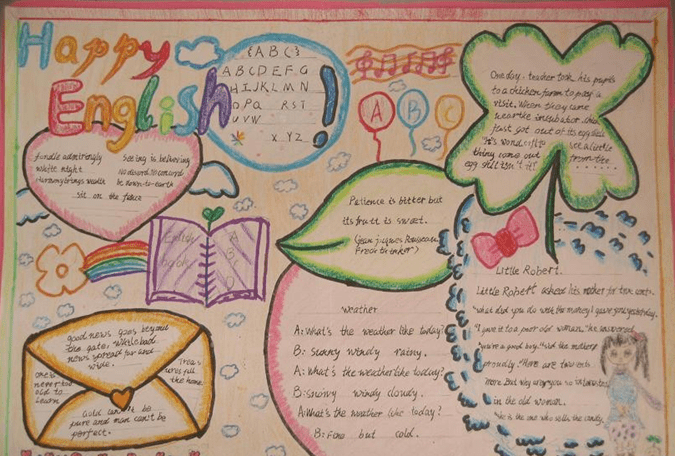 Happy
English!
{A B C}
A B C D E F G
H I J K L M N
O P Q R S T
U V W
X Y Z
A B C
One day. teacher took his pupils
to a chicken farm to pay a
visit. When they were
near the incubator
just got out of its egg
see a little
thing come out from the
egg shell isn't it
Seeing is believing
white night
Harmony brings wealth down-to-earth
sit on the fence
Patience is bitter but
its fruit is sweet.
(Jean Jacques Rousseau
Frech thinker)
English A
book B
good news goes beyond
the gate, while bad
news spread far and
wide.
One is
never too
old to
learn
Treas
ures fill
the home
Gold can't be
pure and man can't be
perfect.
weather
A: What's the weather like today?
B: sunny windy rainy.
A: What's the weather like today?
B: snowy windy cloudy.
A: What's the weather like today?
B: Fine but cold.
Little Robert.
Little Robert asked his mother for two cent.
"What did you do with the money I gave you yesterday.
"I gave it to a poor old woman," he answered
"you're a good boy," said the mother
proudly. "Here are two cents
more. But why are you so interested
in the old woman.
She is the one who sells the candy.